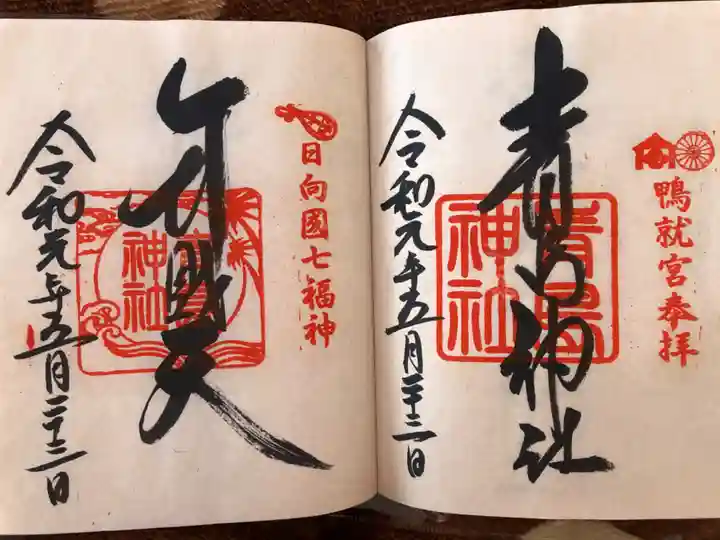 鴨就宮奉拝
青島神社
青島神社
令和元年五月二十三日
日向國七福神
弁財天
青島神社
令和元年五月二十三日